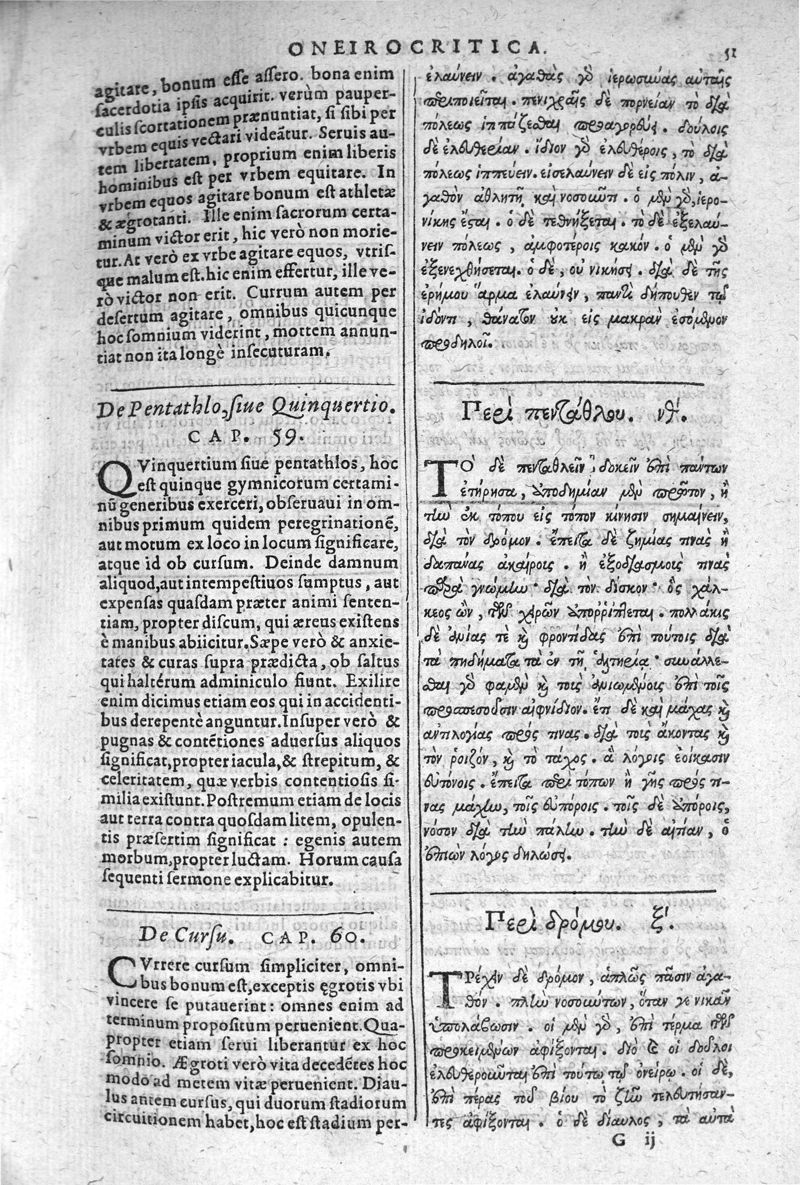 ONEIROCRITICA.
51
agitare, bonum esse assero. bona enim
sacerdotia ipsis acquirit. verùm pauper-
culis scortationem prænuntiat, si sibi per
vrbem equis vectari videātur. Seruis au-
tem libertatem, proprium enim liberis
hominibus est per vrbem equitare. In
vrbem equos agitare bonum est athletæ
& ægrotanti. Ille enim sacrorum certa-
minum victor erit, hic verò non morie-
tur. At verò ex vrbe agitare equos, vtris-
que malum est. hic enim effertur, ille ve-
rò victor non erit. Currum autem per
desertum agitare, omnibus quicunque
hoc somnium viderint, mottem annun-
tiat non ita longè insecuturam.
De Pentathlo, siue Quinquertio.
CAP. 59.
QVinquertium siue pentathlos, hoc
est quinque gymnicorum certami-
nū generibus exerceri, obseruaui in om-
nibus primum quidem peregrinationē,
aut motum ex loco in locum significare,
atque id ob cursum. Deinde damnum
aliquod, aut intempestiuos sumptus, aut
expensas quasdam præter animi senten-
tiam, propter discum, qui æreus existens
è manibus abiicitur. Sæpe verò & anxie-
tates & curas supra prædicta, ob saltus
qui haltérum adminiculo fiunt. Exilire
enim dicimus etiam eos qui in accidenti-
bus derepentè anguntur. Insuper verò &
pugnas & contētiones aduersus aliquos
significat, propter iacula, & strepitum, &
celeritatem, quæ verbis contentiosis si-
milia existunt. Postremum etiam de locis
aut terra contra quosdam litem, opulen-
tis præsertim significat : egenis autem
morbum, propter luctam. Horum causa
sequenti sermone explicabitur.
De Cursu. CAP. 60.
CVrrere cursum simpliciter, omni-
bus bonum est, exceptis ęgrotis vbi
vincere se putauerint: omnes enim ad
terminum propositum peruenient. Qua-
propter etiam serui liberantur ex hoc
somnio. Ægroti verò vita decedētes hoc
modo ad metem vitæ perueniunt. Diau-
lus autem cursus, qui duorum stadiorum
circuitionem habet, hoc est stadium per-
ἐλαύνειν. ἀγαθὰς γὸ ἱερωσύνας αὐταῖς
περιποιεῖται. πενιχραῖς δὲ πορνείαν τὸ διὰ
πόλεως ἱππάζεσθαι προαγορεύει. δούλοις
δὲ ἐλευθερίαν. ἴδιον γὸ ἐλευθέροις, τὸ διὰ
πόλεως ἱππεύειν. εἰσελαύνειν δὲ εἰς πόλιν, ἀ-
γαθὸν ἀθλητῇ καὶ νοσοῦντι. ὁ μὲν γὸ, ἱερο-
νίκης ἔσται. ὁ δὲ τεθνήξεται. τὸ δὲ ἐξελαύ-
νειν πόλεως, ἀμφοτέροις κακόν. ὁ μὲν γὸ
ἐξενεχθήσεται. ὁ δὲ, οὐ νικήσει. διὰ δὲ τῆς
ἐρήμου ἅρμα ἐλαύνειν, παντὶ δήπουθεν τῷ
ἰδόντι, θάνατον οὐκ εἰς μακρὰν ἐσόμενον
προδηλοῖ.
Περὶ πεντάθλου. νθʹ.
ΤΟ δὲ πενταθλεῖν δοκεῖν ἐπὶ πάντων
ἐτήρησα, ἀποδημίαν μὲν πρῶτον, ἢ
τὴν ἐκ τόπου εἰς τόπον κίνησιν σημαίνειν,
διὰ τὸν δρόμον. ἔπειτα δὲ ζημίας τινὰς ἢ
δαπάνας ἀκαίροις. ἢ ἐξοδιασμοὶς τινας
παρὰ γνώμην· διὰ τὸν δίσκον· ὃς χάλ-
κεος ὢν, τῶν χειρῶν ἀπορρίπτεται. πολλάκις
δὲ ἀνίας τε καὶ φροντίδας ἐπὶ τούτοις διὰ
τὰ πηδήματα τὰ ἐν τῇ ἁλτηρίᾳ· συνάλλε-
σθαι γὸ φαμὲν καὶ τοὶς ἀνιωμένοις ἐπὶ τοῖς
προσπεσοῦσιν αἰφνίδιον. ἔτι δὲ καὶ μάχας καὶ
ἀντιλογίας πρός τινας. διὰ τοὶς ἄκοντας καὶ
τὸν ῥοῖζον, καὶ τὸ τάχος. ἃ λόγοις ἐοίκασιν
εὐτόνοις. ἔπειτα περὶ τόπων ἢ γῆς πρός τι-
νας μάχην, τοῖς εὐπόροις. τοῖς δὲ ἀπόροις,
νόσον διὰ τὴν πάλην. τὴν δὲ αἰτίαν, ὁ
ἐπιὼν λόγος δηλώσει.
Περὶ δρόμου. ξʹ.
ΤΡέχειν δὲ δρόμον, ἁπλῶς πᾶσιν ἀγα-
θόν. πλὴν νοσούντων, ὅταν γε νικᾶν
ὑπολάβωσιν. οἱ μὲν γὸ, ἐπὶ τέρμα τῶν
προκειμένων ἀφίξονται. διὸ καὶ οἱ δοῦλοι
ἐλευθεροῦνται ἐπὶ τούτῳ τῷ ὀνείρῳ. οἱ δὲ,
ἐπὶ πέρας τοῦ βίου τὸ ζῆν τελευτήσαν-
τες ἀφίξονται. ὁ δὲ δίαυλος, τὰ αὐτὰ
G ij